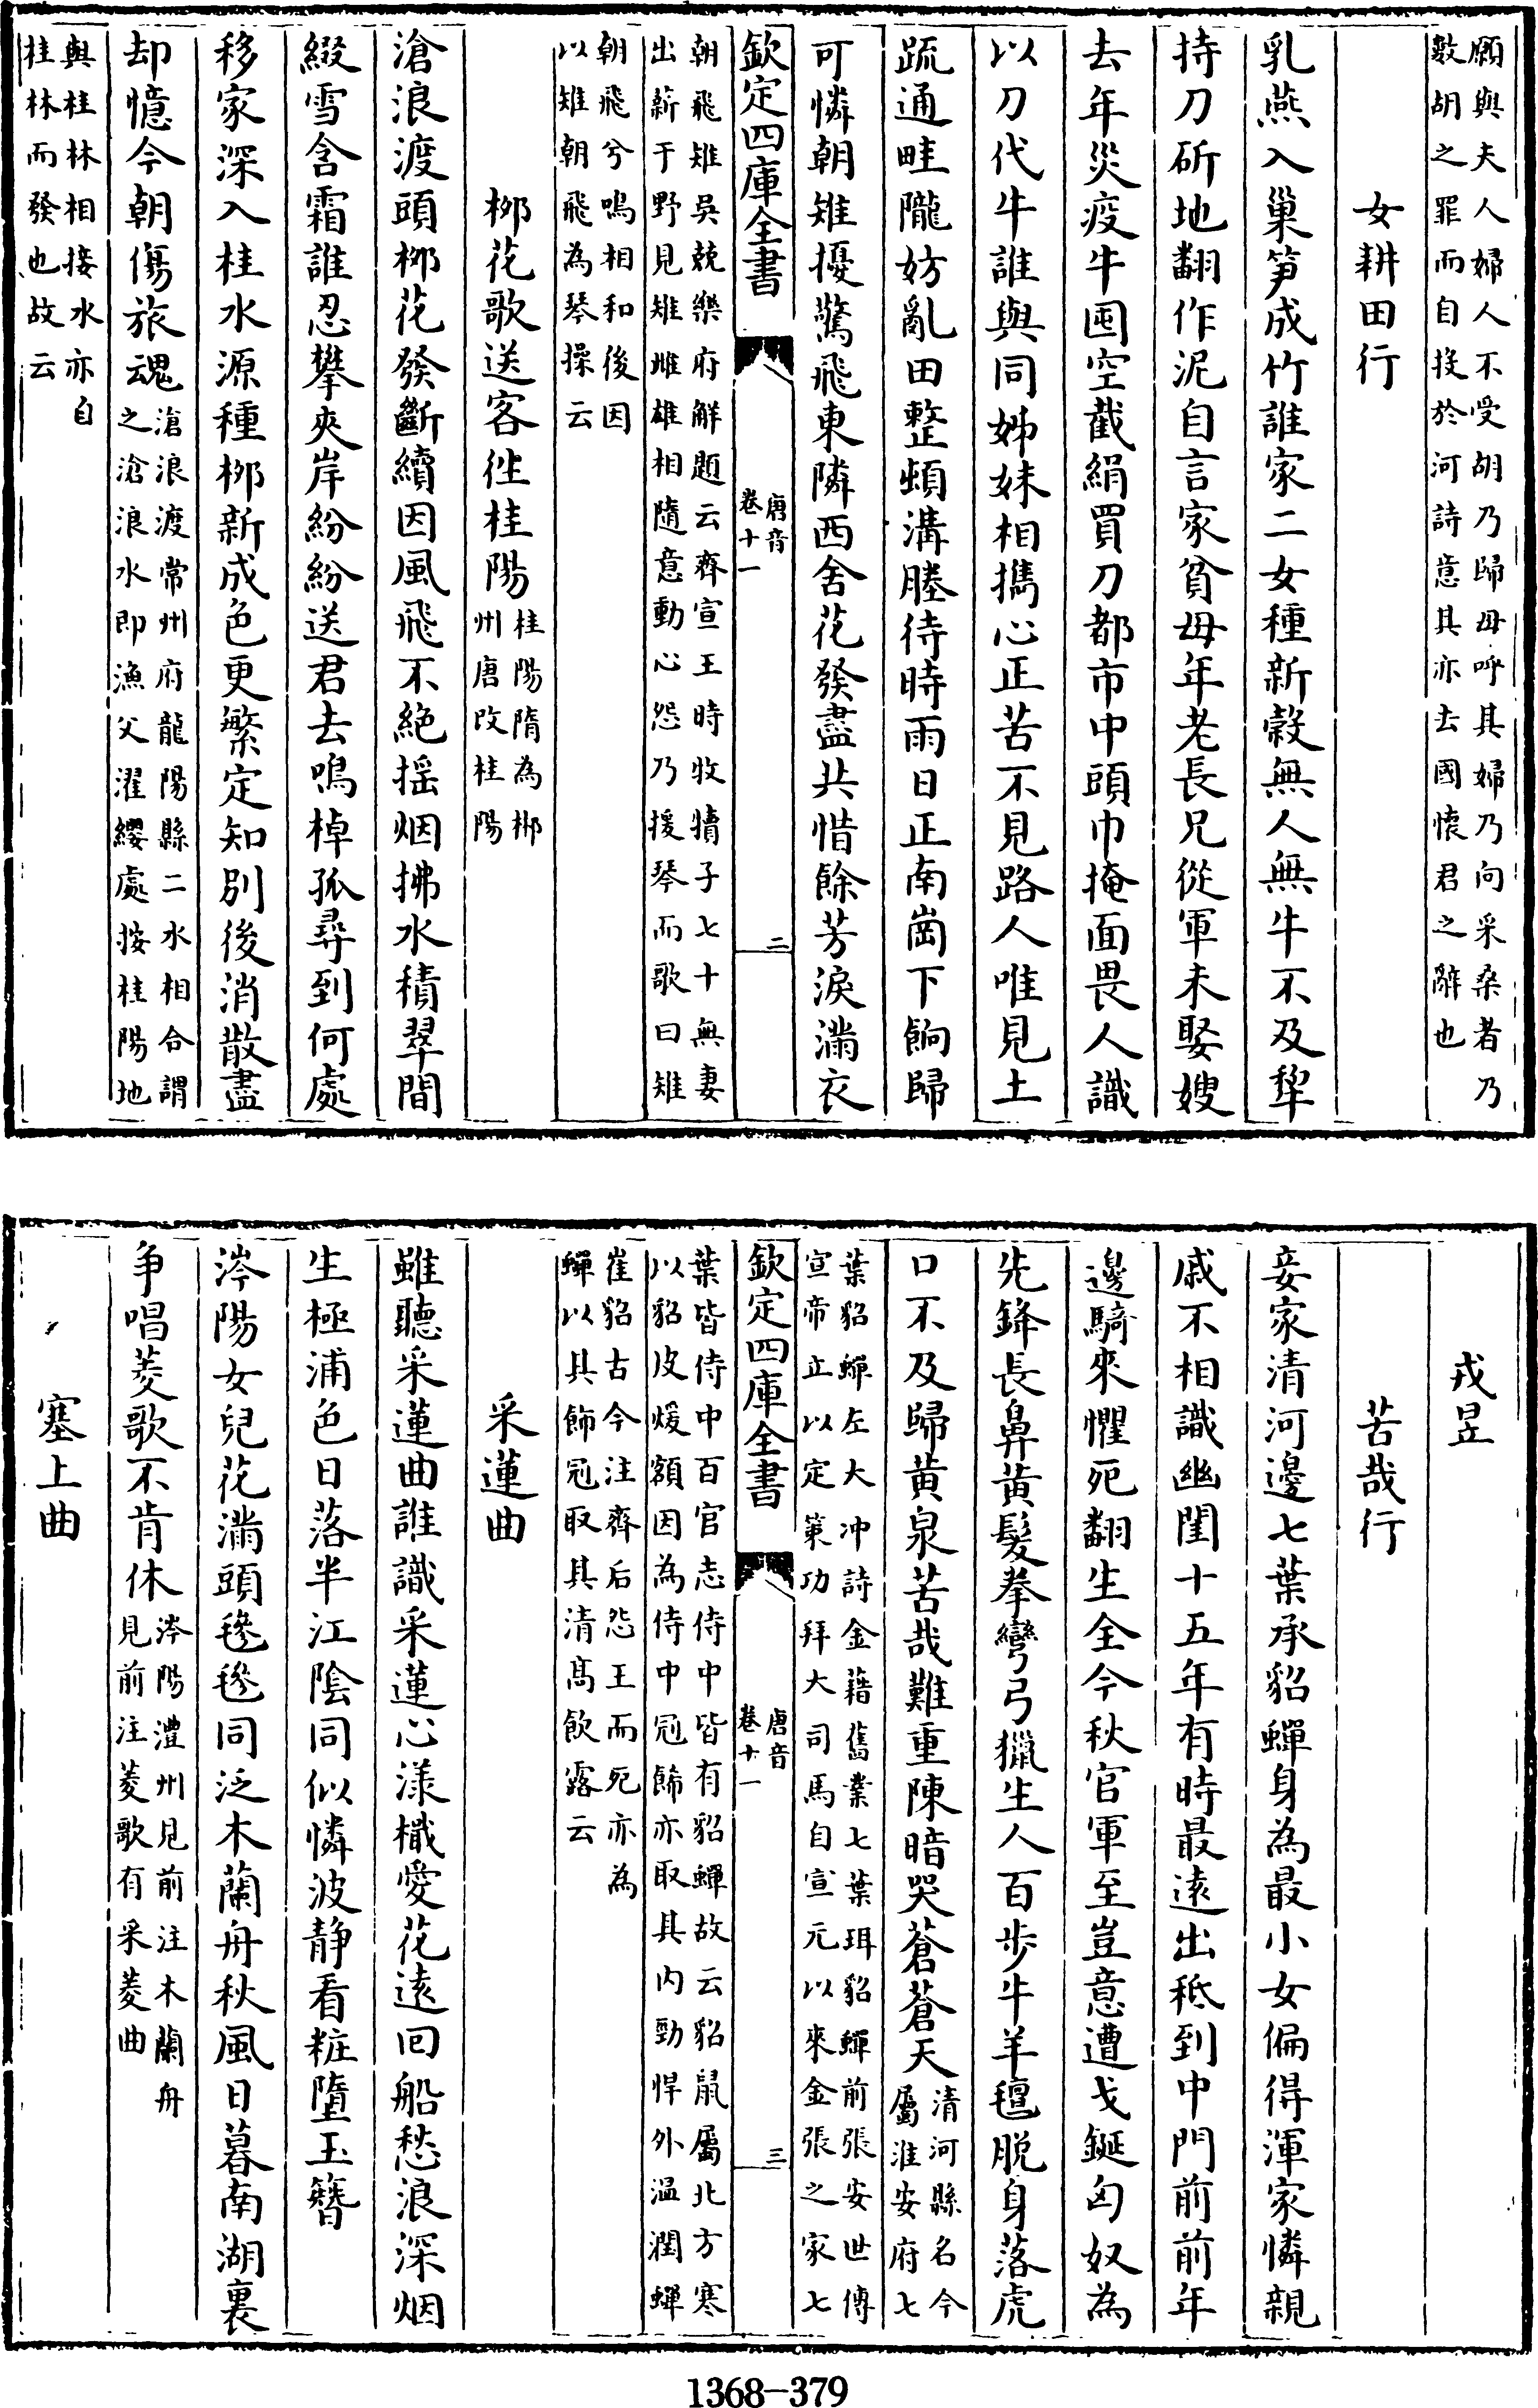 願與夫人婦人不受胡乃歸母呼其婦乃向采桑者乃
數胡之罪而自投於河詩意其亦去國懷君之辭也
女耕田行
乳燕入巢笋成竹誰家二女種新穀無人無牛不及犂
持刀斫地翻作泥自言家貧母年老長兄從軍未娶嫂
去年災疫牛囤空截絹買刀都市中頭巾掩面畏人識
以刀代牛誰與同姊妹相攜心正苦不見路人唯見土
疏通畦隴妨亂田整頓溝塍待時雨日正南崗下餉歸
可憐朝雉擾驚飛東隣西舍花發盡共惜餘芳淚滿衣
朝飛雉吳兢樂府解題云齊宣王時牧犢子七十無妻
出薪于野見雉雌雄相隨意動心怨乃援琴而歌曰雉
朝飛兮鳴相和後因
以雉朝飛為琴操云
栁花歌送客徃桂陽桂陽隋為郴
州唐改桂陽
滄浪渡頭栁花發斷續因風飛不絶揺烟拂水積翠間
綴雪含霜誰忍攀夾岸紛紛送君去鳴棹孤尋到何處
移家深入桂水源種栁新成色更繁定知別後消散盡
却憶今朝傷旅魂滄浪渡常州府龍陽縣二水相合謂
之滄浪水即漁父濯纓處按桂陽地
與桂林相接水亦自
桂林而發也故云
欽定四庫全書
唐音
卷十一
二
戎昱
苦哉行
妾家清河邊七葉承貂蟬身為最小女偏得渾家憐親
戚不相識幽閨十五年有時最逺出秪到中門前前年
邊騎來懼死翻生全今秋官軍至豈意遭戈鋋匈奴為
先鋒長鼻黄髮拳彎弓獵生人百步牛羊氊脱身落虎
口不及歸黄泉苦哉難重陳暗哭蒼蒼天清河縣名今
屬淮安府七
葉貂蟬左太冲詩金藉舊業七葉珥貂蟬前張安世傳
宣帝立以定䇿功拜大司馬自宣元以來金張之家七
葉皆侍中百官志侍中皆有貂蟬故云貂鼠屬北方寒
以貂皮煖額因為侍中冠飾亦取其内勁悍外温潤蟬
崔貂古今注齊后怨王而死亦為
蟬以其飾冠取其清髙飲露云
采蓮曲
雖聽采蓮曲誰識采蓮心漾檝愛花逺回船愁浪深烟
生極浦色日落半江陰同似憐波静看粧墮玉簪
涔陽女兒花滿頭毶毶同泛木蘭舟秋風日暮南湖裏
争唱菱歌不肯休涔陽澧州見前注木蘭舟
見前注菱歌有采菱曲
塞上曲
欽定四庫全書
唐音
卷十一
三
1368-379